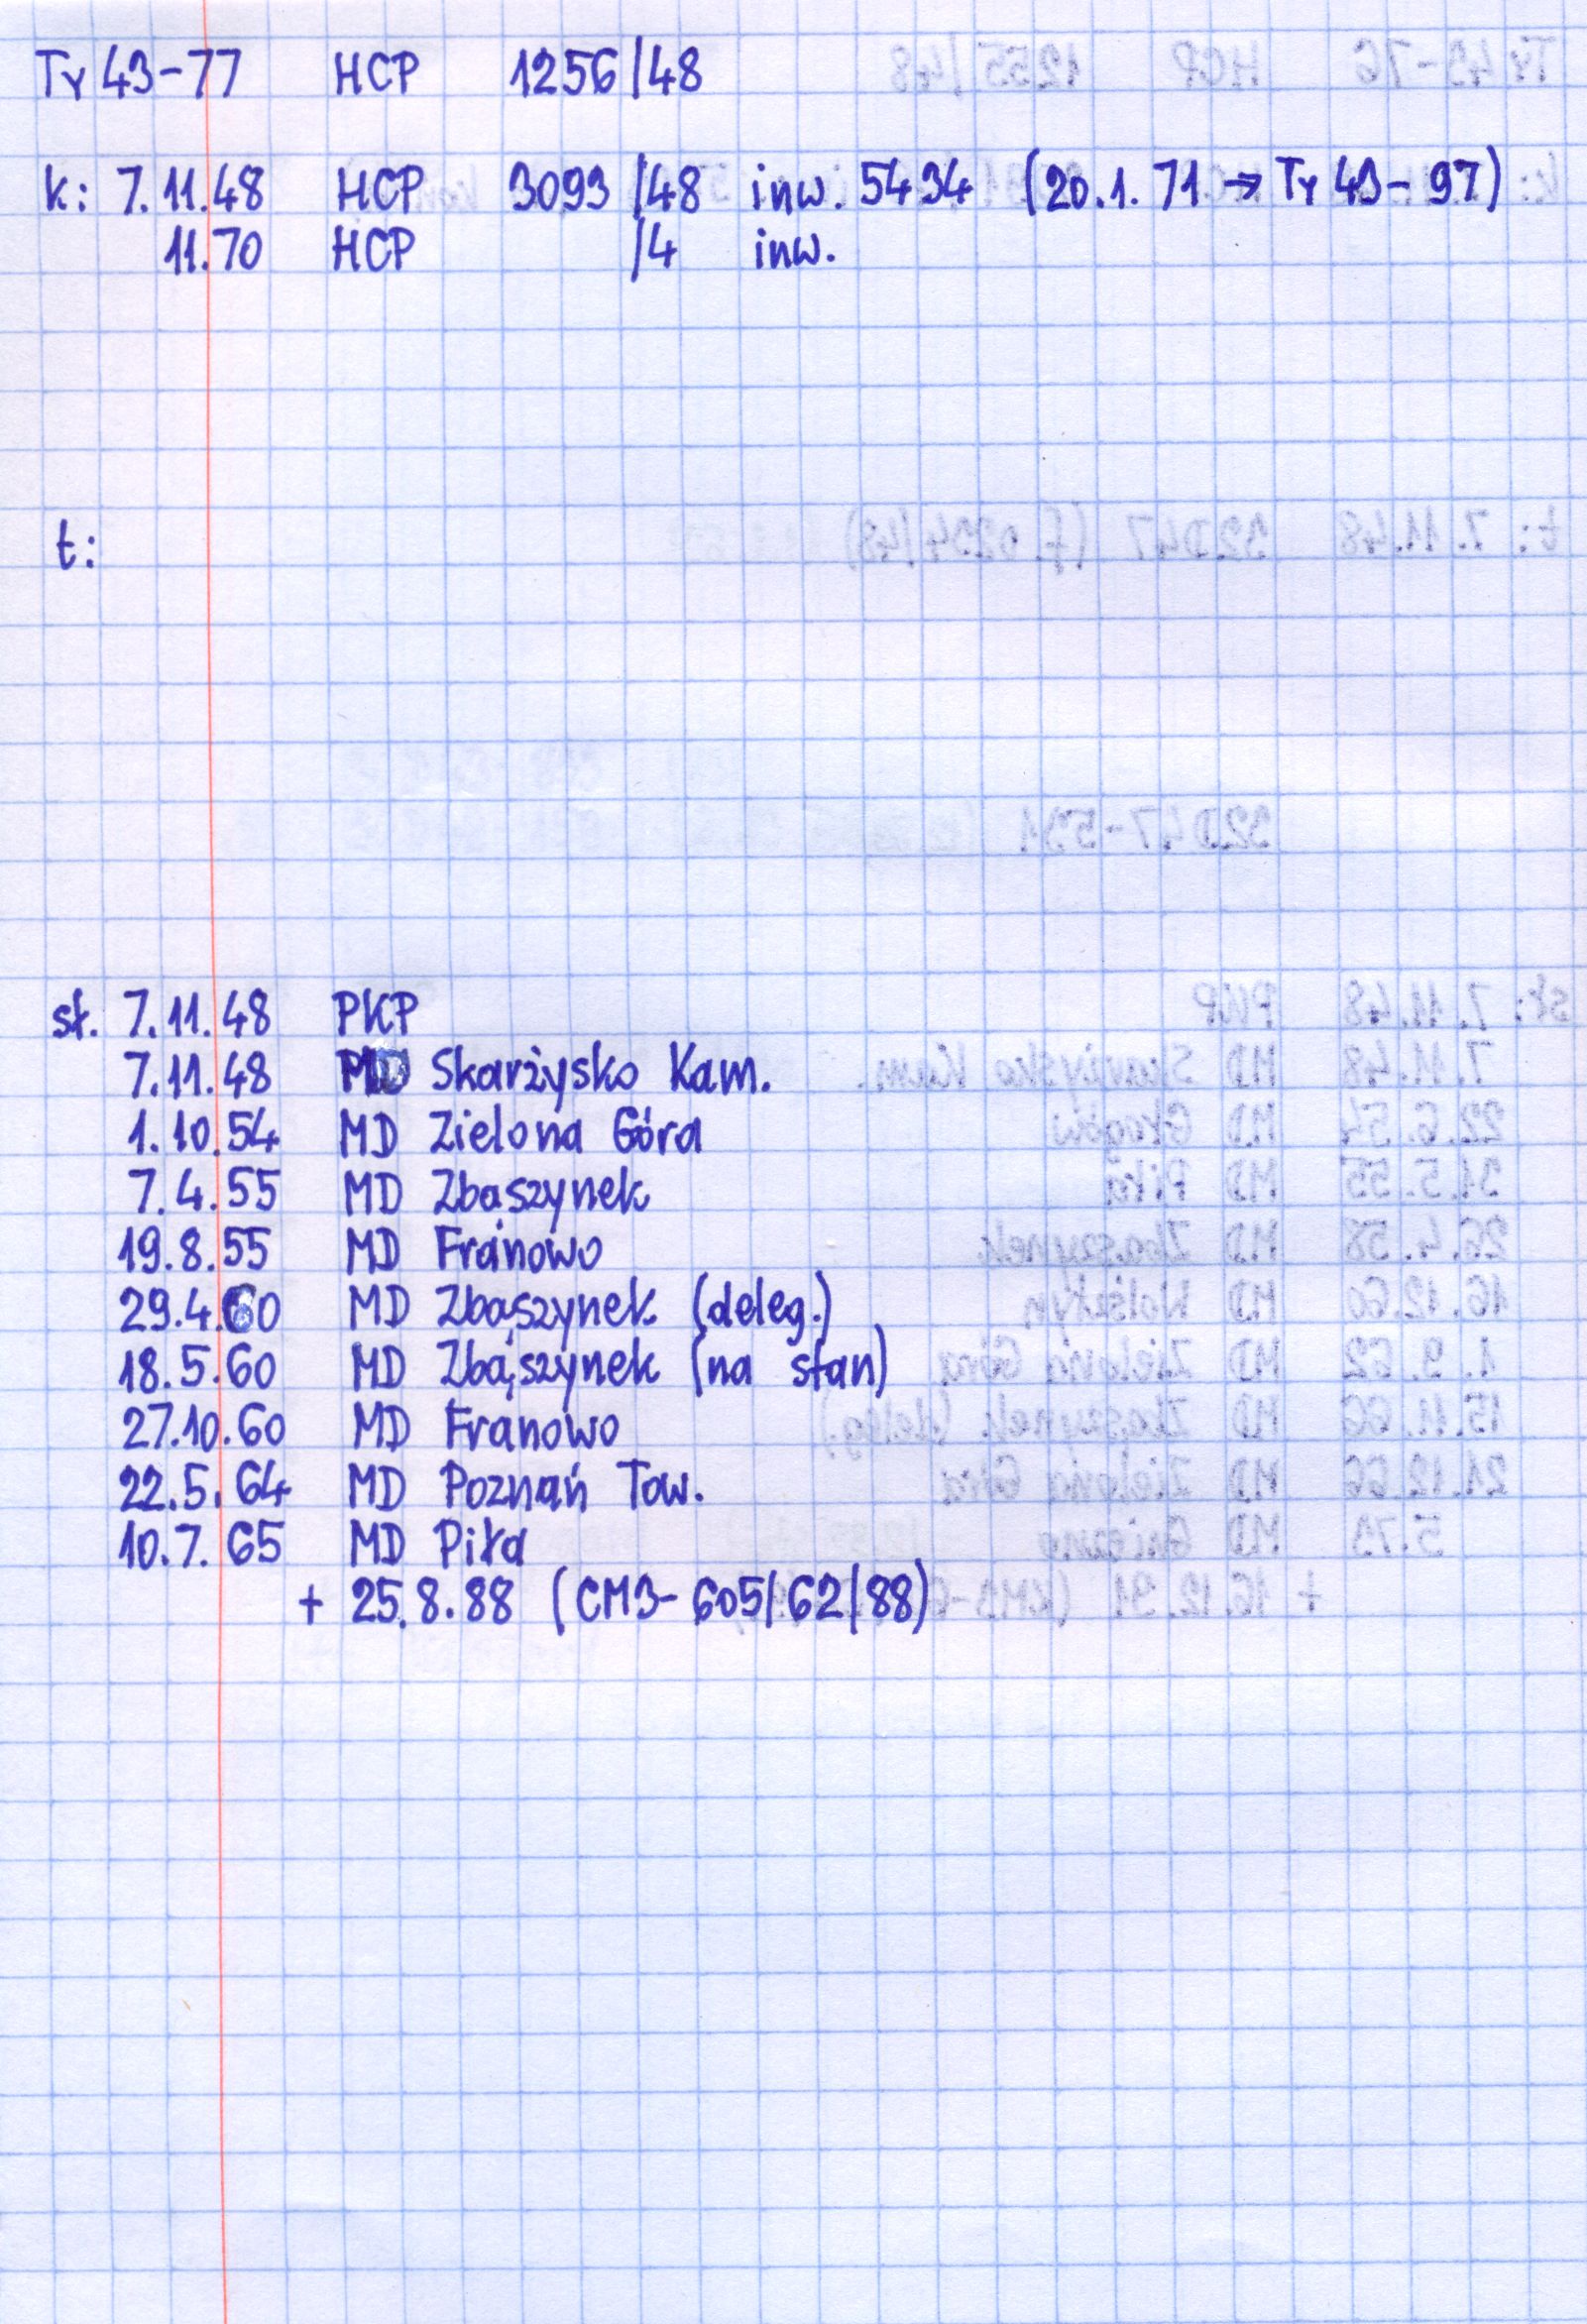 Ty 43-77 HCP 1256/48
k: 7.11.48 HCP 3093/48 inw. 5434 (20.1.71 → Ty 43-97)
11.70 HCP /4 inw.
t:
st. 7.11.48 PKP
7.11.48 MD Skarżysko Kam.
1.10.54 MD Zielona Góra
7.4.55 MD Zbąszynek
19.8.55 MD Franowo
29.4.60 MD Zbąszynek (deleg.)
18.5.60 MD Zbąszynek (na stan)
27.10.60 MD Franowo
22.5.64 MD Poznań Tow.
10.7.65 MD Piła
+ 25.8.88 (CM3-605/62/88)